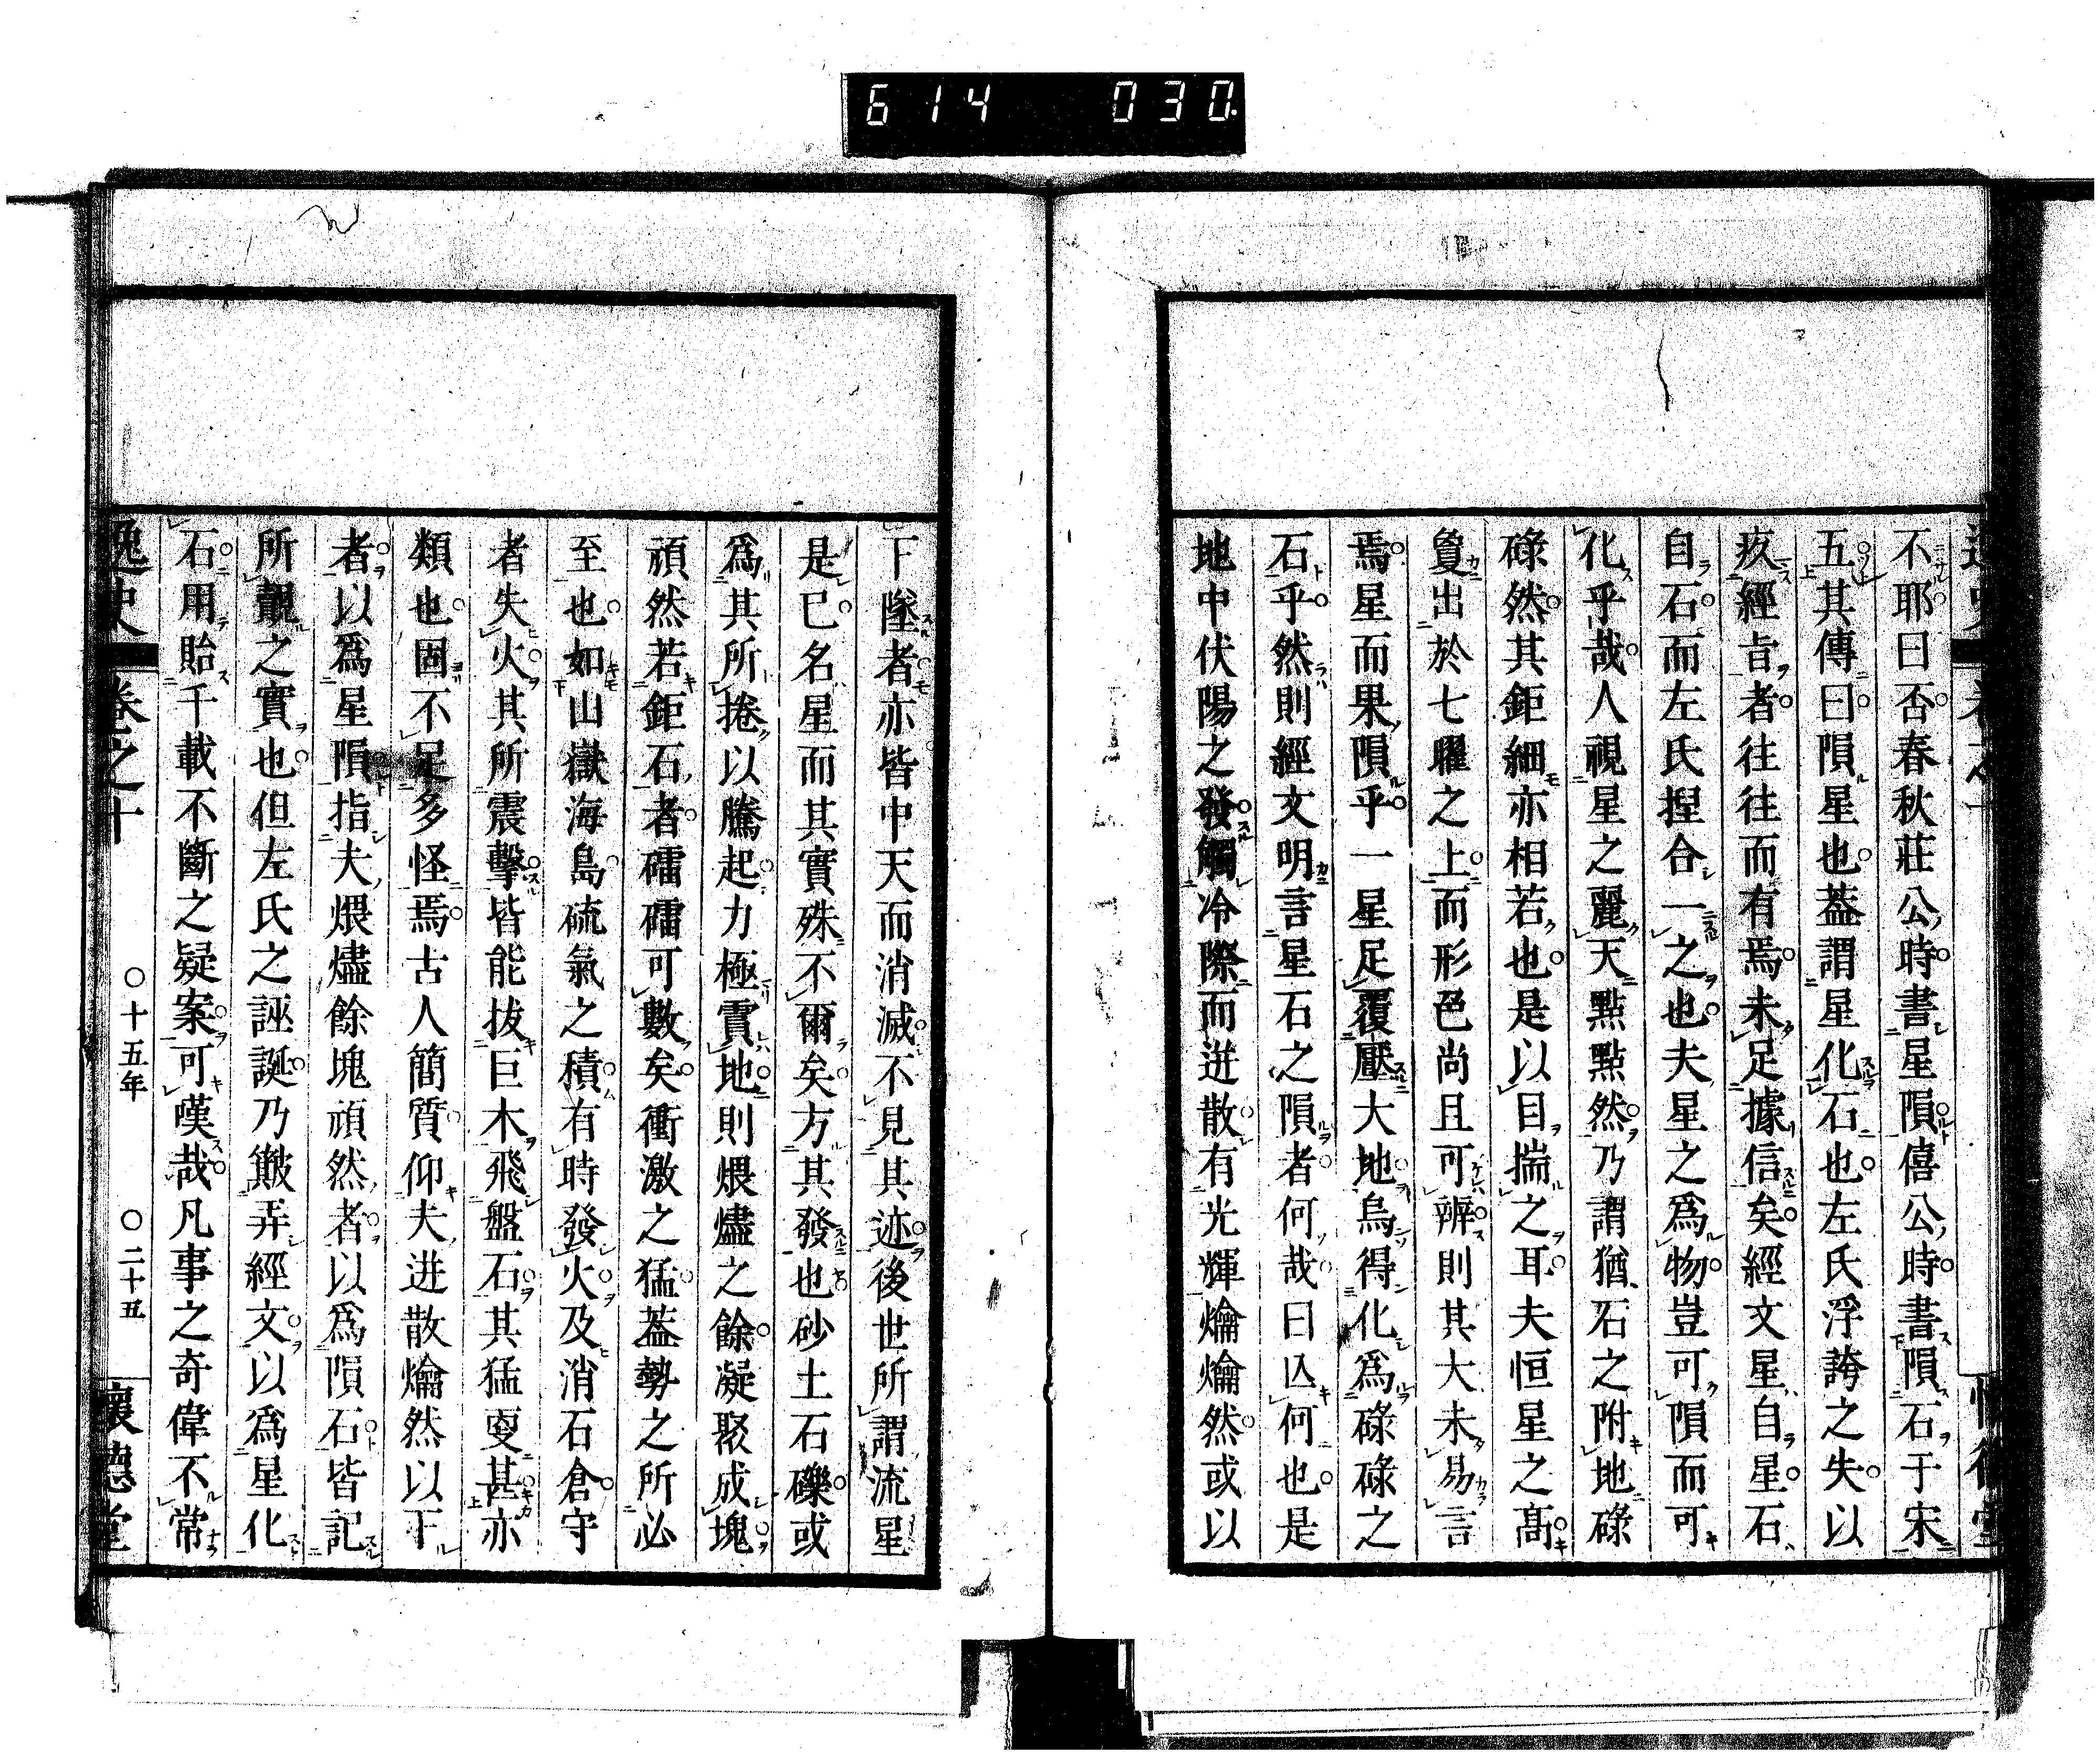 614 030
不耶曰否春秋莊公時書星隕僖公時書隕石于宋
五其傳曰隕星也蓋謂星化石也左氏浮誇之失以
疚經旨者往往而有焉未足據信矣經文星自星石
自石而左氏捏合一之也夫星之爲物豈可隕而可
化乎哉人視星之麗天點點然乃謂猶石之附地碌
碌然其鉅細亦相若也是以目揣之耳夫恒星之高
敻出於七曜之上而形色尚且可辨則其大未易言
焉星而果隕乎一星足覆壓大地烏得化爲碌碌之
石乎然則經文明言星石之隕者何哉曰㕥何也是
地中伏陽之發觸冷際而迸散有光輝爚爚然或以
下墜者亦皆中天而消滅不見其迹後世所謂流星
是已名星而其實殊不爾矣方其發也砂土石礫或
爲其所捲以騰起力極賈地則煨燼之餘凝聚成塊
頑然若鉅石者礌礌可數矣衝激之猛蓋勢之所必
至也如山嶽海島硫氣之積有時發火及消石倉守
者失火其所震擊皆能拔巨木飛盤石其猛更甚亦
類也固不足多怪焉古人簡質仰夫迸散爚然以下
者以爲星隕指夫煨燼餘塊頑然者以爲隕石皆記
所覩之實也但左氏之誣誕乃簸弄經文以爲星化
石用貽千載不斷之疑案可嘆哉凡事之奇偉不常
逸史 卷之十 ○十五年 ○二十五 懷德堂